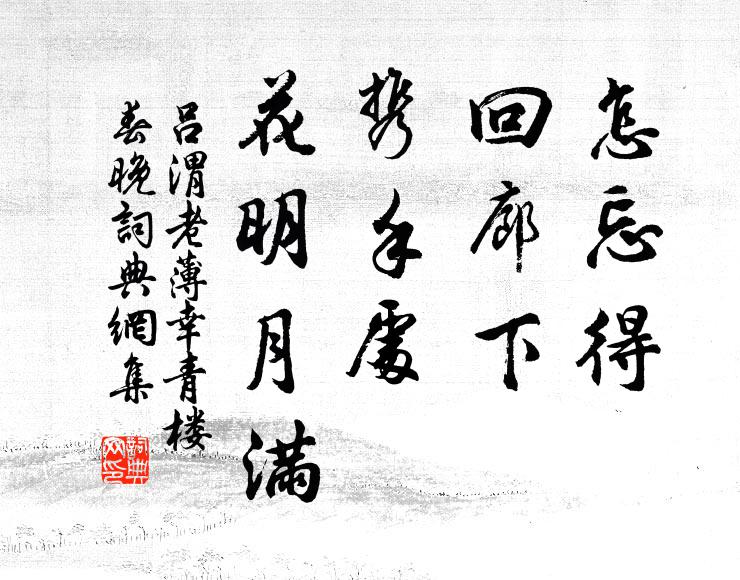 怎忘得
回廊下
携手處
花明月满
吕渭老薄幸青楼
春晚詞典網集
詞典
网印